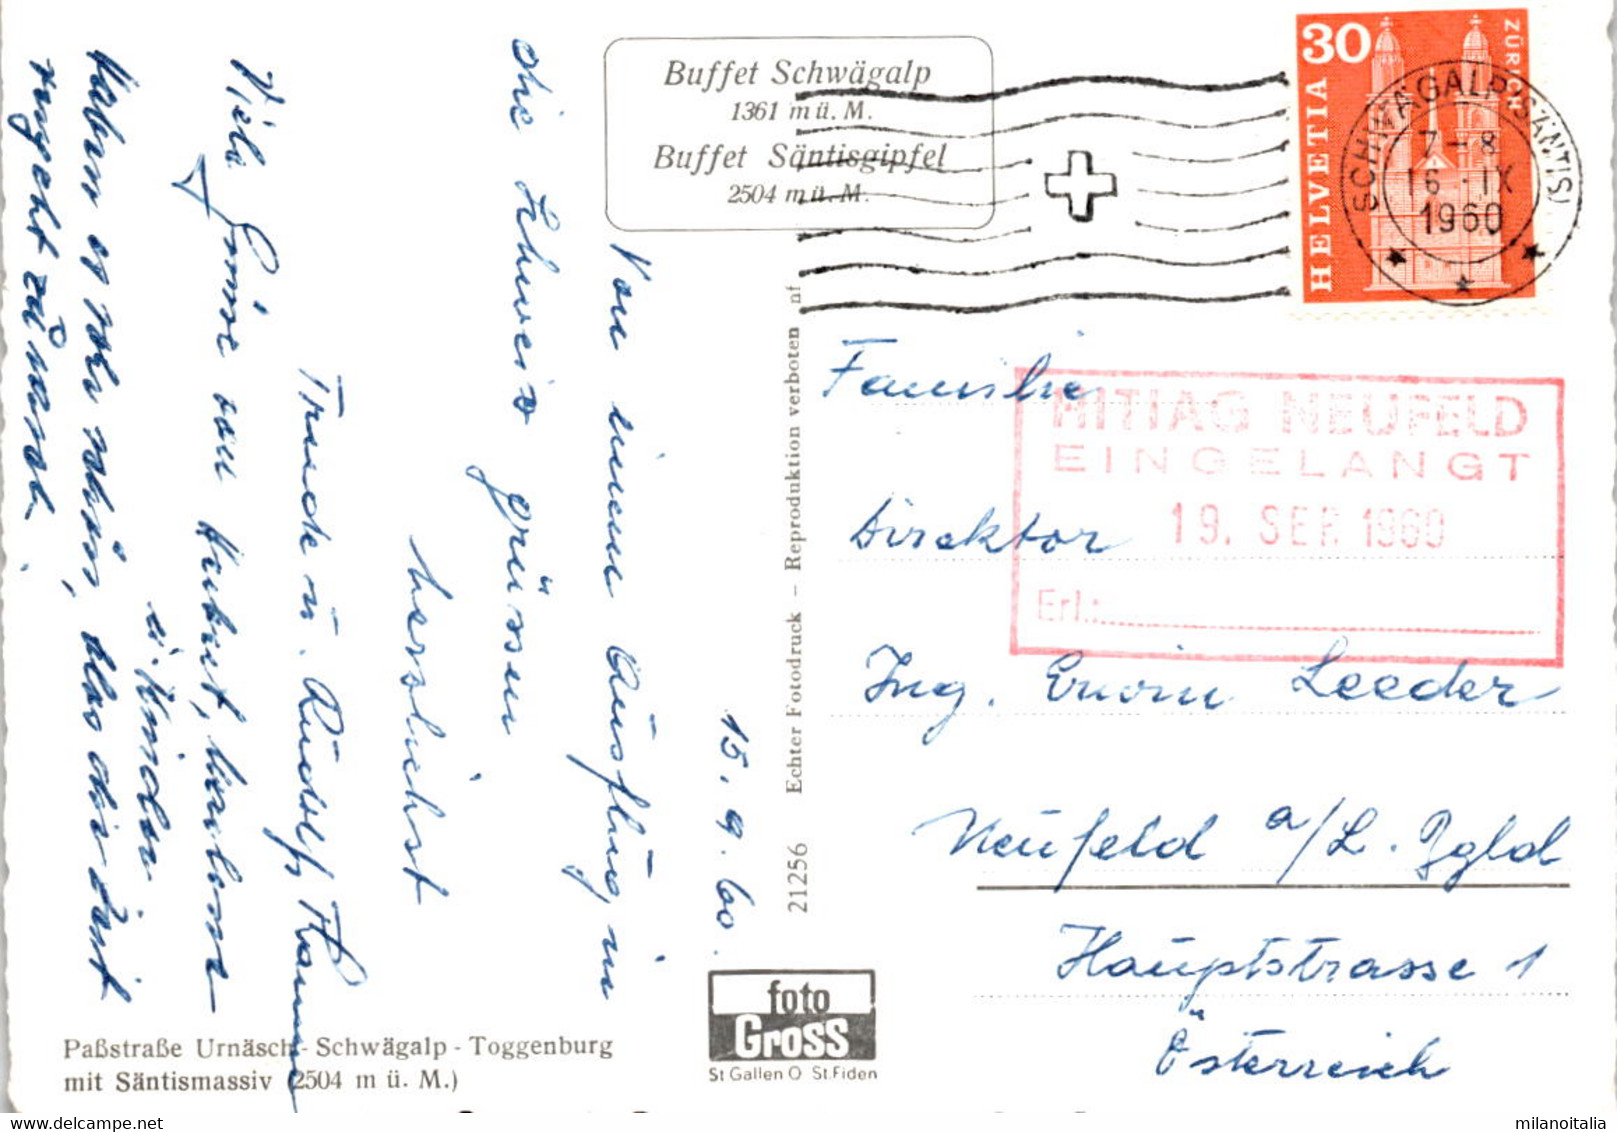 Buffet Schwägalp
1361 m ü. M.
Buffet Säntisgipfel
2504 m ü. M.
HELVETIA
30
ZÜRICH
SCHWÄGALP (SÄNTIS)
7-8
16.IX
1960
15.9.60.
Von einem Ausflug in
die Schweiz grüssen
herzlichst
Trude u. Rudolf
Viele Grüsse von Hubert,
u. Kinder
haben es sehr schön, das die Zeit
vergeht zu rasch.
21256 Echter Fotodruck – Reproduktion verboten nf
Familie
Direktor
Ing. Erwin Leeder
Neufeld a/L. Bgld
Hauptstrasse 1
Österreich
MITIAG NEUFELD
EINGELANGT
19. SEP. 1960
Erl.:
foto
Gross
St Gallen O St. Fiden
Paßstraße Urnäsch - Schwägalp - Toggenburg
mit Säntismassiv (2504 m ü. M.)
milanoitalia